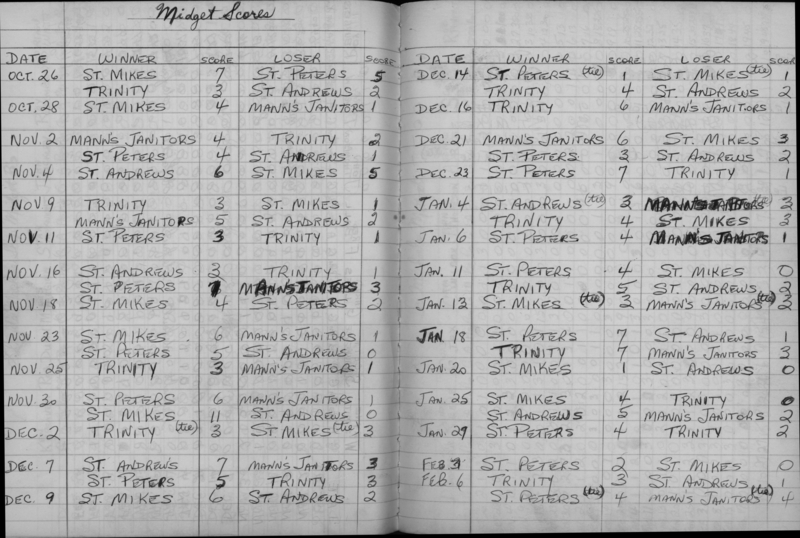 Midget Scores
DATE WINNER SCORE LOSER SCORE
OCT. 26 ST. MIKES 7 ST. PETERS 5
TRINITY 3 ST. ANDREWS 2
OCT. 28 ST. MIKES 4 MANN'S JANITORS 1
NOV. 2 MANN'S JANITORS 4 TRINITY 2
ST. PETERS 4 ST. ANDREWS 1
NOV. 4 ST. ANDREWS 6 ST. MIKES 5
NOV 9 TRINITY 3 ST. MIKES 1
MANN'S JANITORS 5 ST. ANDREWS 2
NOV. 11 ST. PETERS 3 TRINITY 1
NOV. 16 ST. ANDREWS 3 TRINITY 1
ST. PETERS 7 MANNS JANITORS 3
NOV 18 ST. MIKES 4 ST. PETERS 2
NOV 23 ST. MIKES 6 MANN'S JANITORS 1
ST. PETERS 5 ST. ANDREWS 0
NOV 25 TRINITY 3 MANN'S JANITORS 1
NOV. 30 ST. PETERS 6 MANN'S JANITORS 1
ST. MIKES 11 ST. ANDREWS 0
DEC. 2 TRINITY (tie) 3 ST MIKES (tie) 3
DEC. 7 ST. ANDREWS 7 MANN'S JANITORS 3
ST. PETERS 5 TRINITY 3
DEC. 9 ST. MIKES 6 ST. ANDREWS 2
DATE WINNER SCORE LOSER SCORE
DEC. 14 ST. PETERS (tie) 1 ST. MIKES (tie) 1
TRINITY 4 ST. ANDREWS 2
DEC. 16 TRINITY 6 MANN'S JANITORS 1
DEC. 21 MANN'S JANITORS 6 ST. MIKES 3
ST. PETERS 3 ST. ANDREWS 2
DEC. 23 ST. PETERS 7 TRINITY 1
JAN. 4 ST. ANDREWS (tie) 3 MANN'S JANITORS (tie) 3
TRINITY 4 ST. MIKES 3
JAN. 6 ST. PETERS 4 MANN'S JANITORS 1
JAN. 11 ST. PETERS 4 ST. MIKES 0
TRINITY 5 ST. ANDREWS 2
JAN. 13 ST. MIKES (tie) 2 MANN'S JANITORS (tie) 2
JAN. 18 ST. PETERS 7 ST. ANDREWS 1
TRINITY 7 MANN'S JANITORS 3
JAN. 20 ST. MIKES 1 ST. ANDREWS 0
JAN. 25 ST. MIKES 4 TRINITY 0
ST. ANDREWS 5 MANN'S JANITORS 2
JAN. 29 ST. PETERS 4 TRINITY 2
FEB. ST. PETERS 2 ST. MIKES 0
FEB. 6 TRINITY 3 ST. ANDREWS 1
ST. PETERS (tie) 4 MANN'S JANITORS (tie) 4